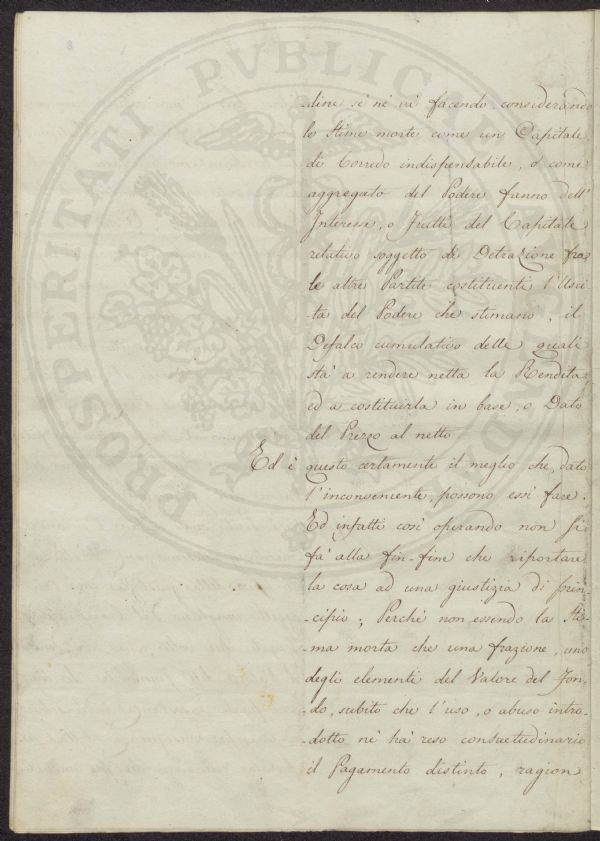 PROSPERITATI PVBLICAE
8
-dine si nè vi facendo considerando
le stime morte come un Capitale
di Corredo indispensabile, o come
aggregato del Podere fanno dell'
Interesse, o Frutti del Capitale
relativo soggetto di Detrazione fra
le altre Partite costituenti l'Usci
-ta del Podere che stimano, il
Defalco cumulativo delle quali
stà a rendere netta la Rendita,
ed a costituirla in base, o Dato
del Prezzo al netto.
Ed è questo certamente il meglio che, dato
l'inconveniente, possono essi fare.
Ed infatti così operando non si
fà alla fin-fine che riportare
la cosa ad una giustizia di prin-
-cipio; Perchè non essendo la sti-
-ma morta che una frazione, uno
degli elementi del Valore del Fon-
-do, subito che l'uso, o abuso intro-
-dotto nè hà reso consuetudinario
il Pagamento distinto, ragion